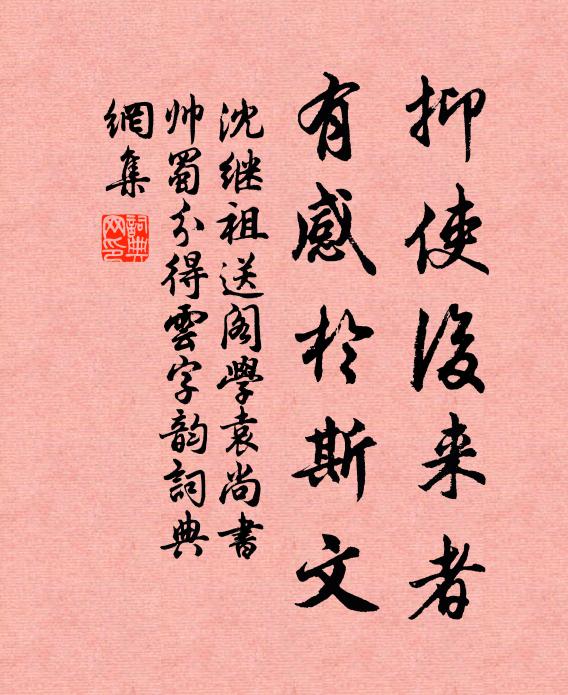 抑使後来者
有感於斯文
沈继祖送阁學袁尚書
帅蜀分得雲字韵詞典
網集
詞典網印